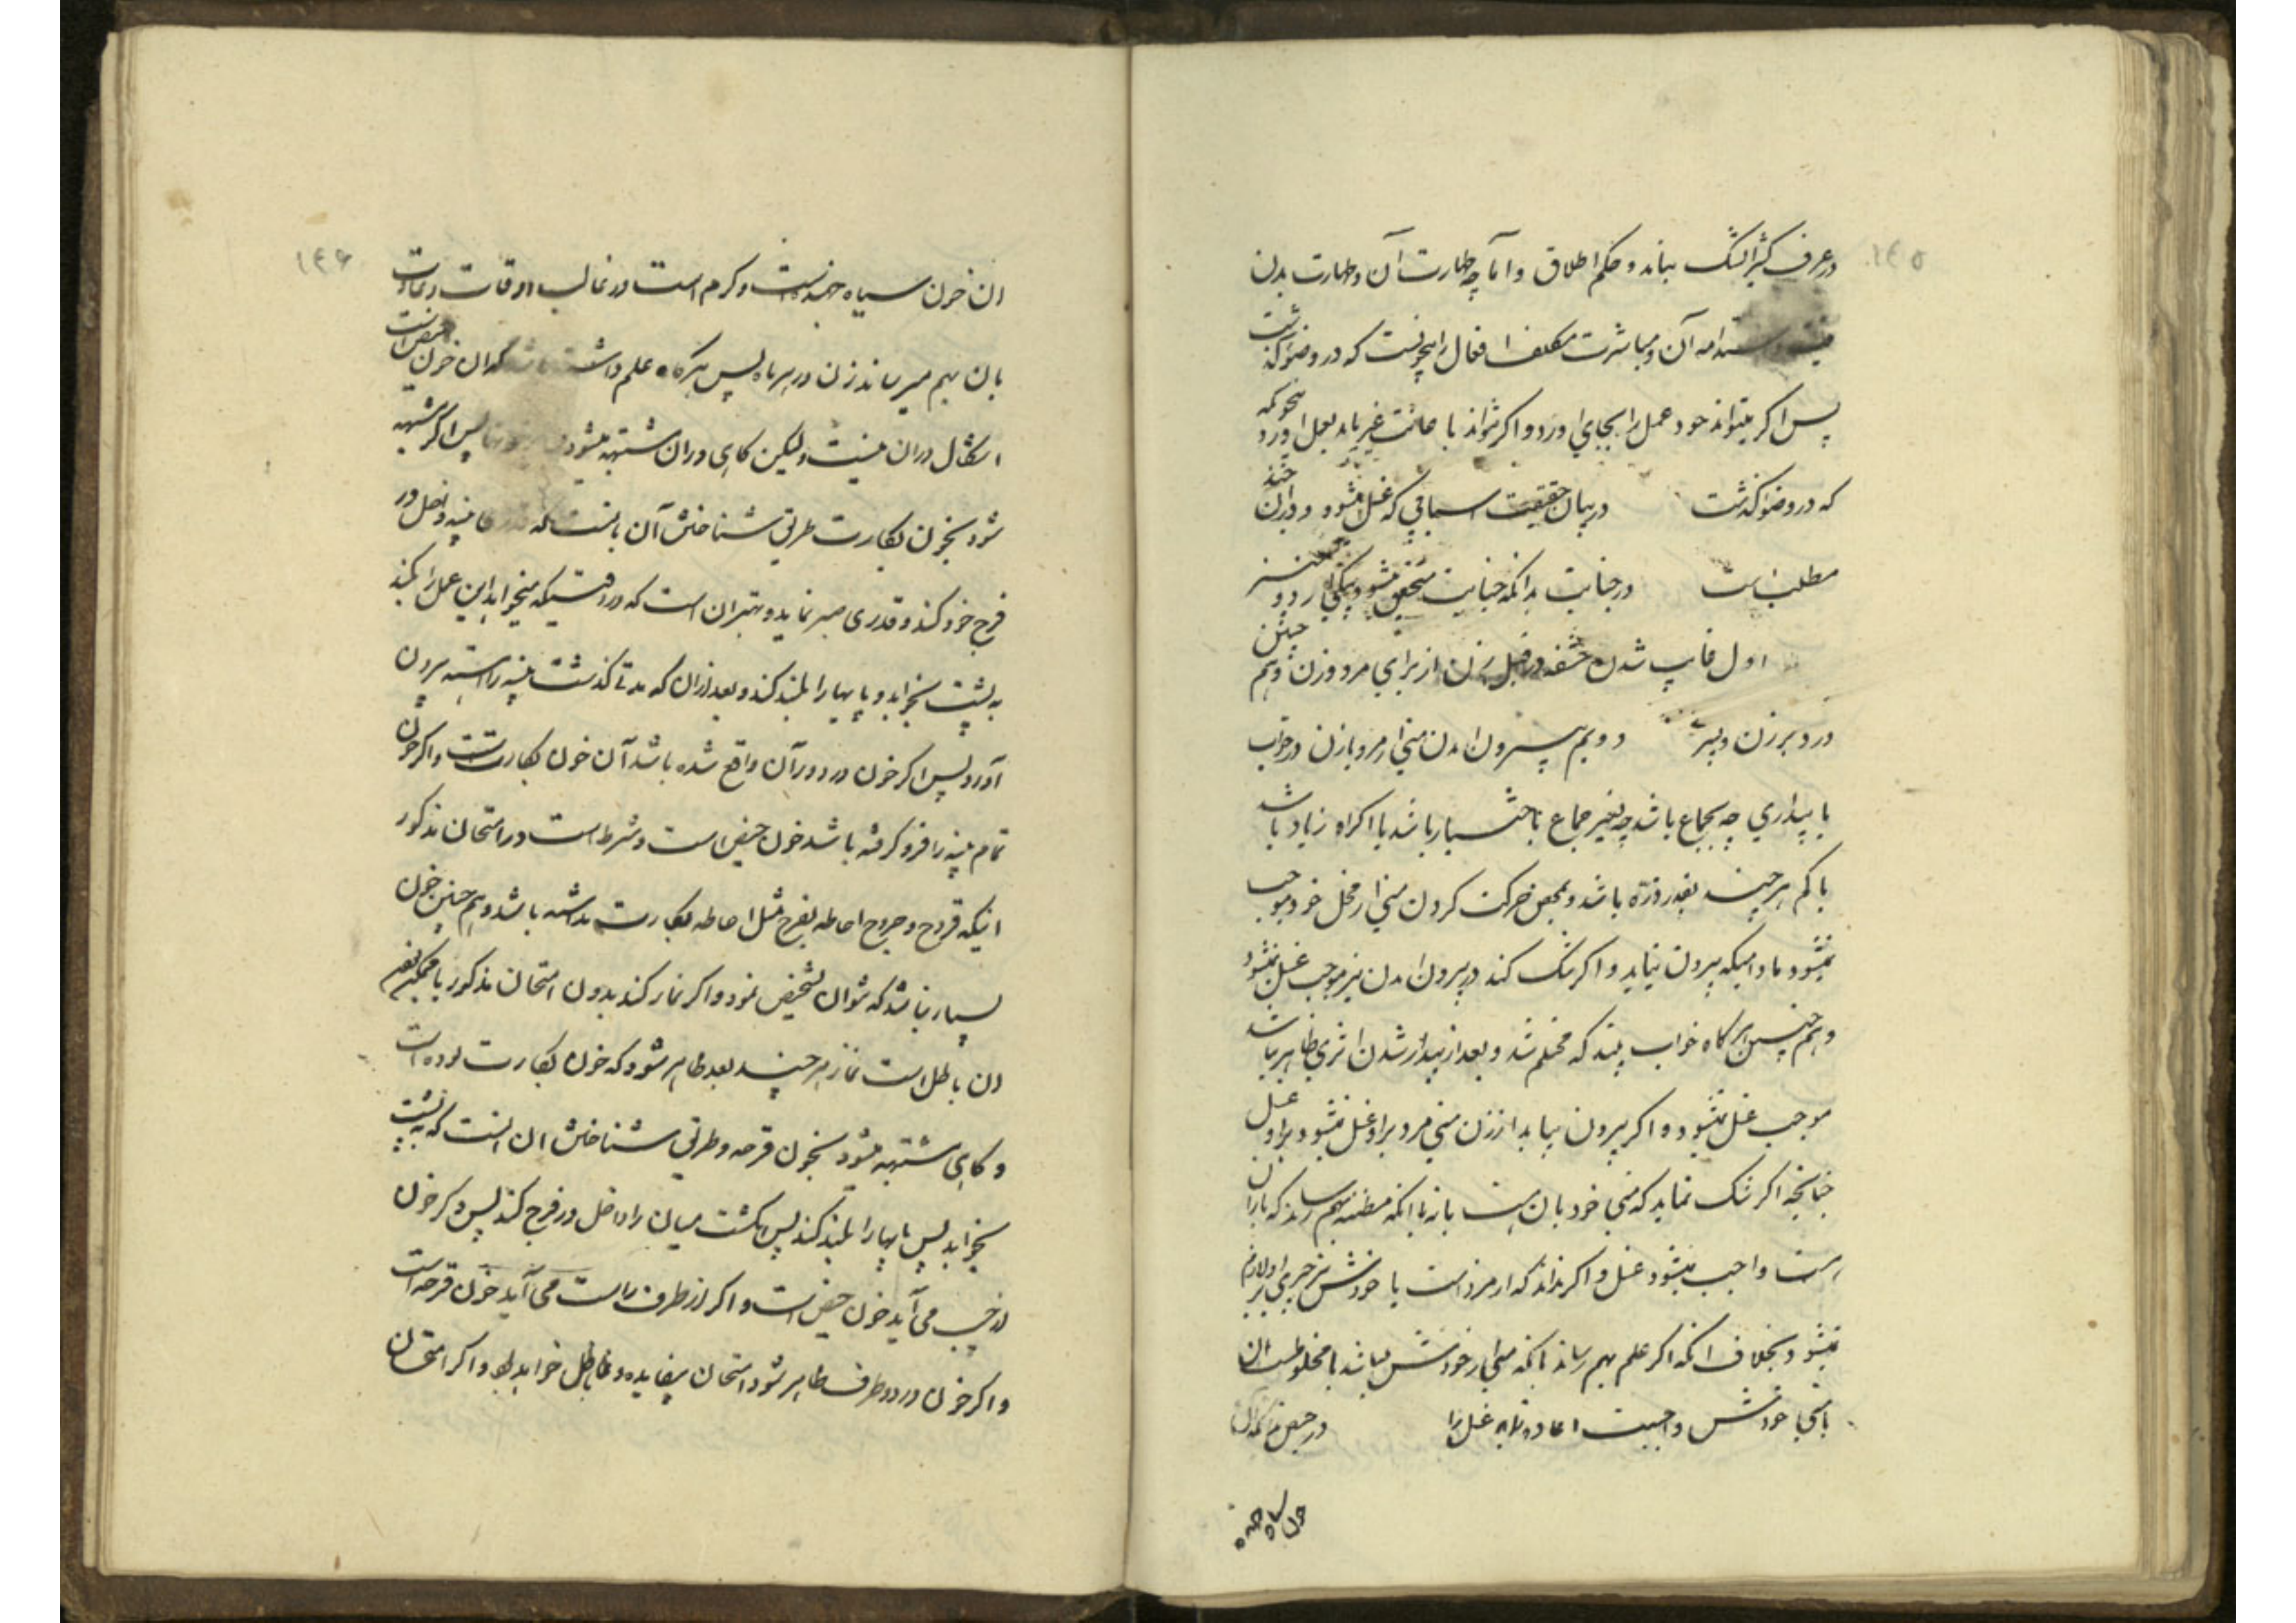 ۱۴۵
در عرف کثیر الشک بماند و حکم اطلاق و اما چه طهارت آن و طهارت بدن
نیت و استدامه آن و مباشرت مکلف افعال را بنحویست که در وضو گذشت
پس اگر بتواند خود عمل را بجای اورد و اگر نتواند با عانت غیر باید بعمل اورد بنحویکه
که در وضو گذشت در بیان حقیقت اسبابی که غسل میشود و در آن چند
مطلب است در جنابت بدانکه جنابت متحقق میشود بیکی از دو چیز
اول غایب شدن حشفه در قبل زن از برای مرد و زن و هم چنین
در دبر زن و پسر دویم بیرون امدن منی از مرد یا زن در خواب
یا بیداری چه بجماع باشد چه بغیر جماع باختیار باشد یا اکراه زیاد باشد
یا کم هر چند بقدر ذره باشد و بمحض حرکت کردن منی از محل خود موجب
نمیشود مادامیکه بیرون نیاید و اگر شک کند در بیرون امدن نیز موجب غسل نمیشود
و هم چنین هرگاه خواب بیند که محتلم شد و بعد از بیدار شدن اثری ظاهر نباشد
موجب غسل نمیشود و اگر بیرون بیاید از زن منی مرد بر او غسل نمیشود بر او غسل
چنانچه اگر شک نماید که منی خود بان هست یا نه با انکه مظنه بهم رساند که با ان
هست واجب میشود غسل و اگر نداند که از مرد است یا خودش نیز چیزی بر او لازم
نمیشود بخلاف انکه اگر علم بهم رساند بانکه منی از خودش میباشد یا مخلوطست ان
با منی خودش واجبست اعاده نماید غسل را در حیض بدانکه ان
خون سیاه جهنده
۱۴۶
ان خون سیاه جهنده است و گرم است در غالب اوقات و عادت
بان بهم میرساند زن در هر ماه پس هرگاه علم داشته باشد که ان خون حیض است
اشکال در ان نیست و لیکن گاهی در ان مشتبه میشود پس اگر مشتبه
شود بخون بکارت طریق شناختن آن باینست که پنبه داخل در
فرج خود کند و قدری صبر نماید و بهتر ان است که در وقتیکه میخواهد این عمل را بکند
به پشت بخوابد و پایها را بلند کند و بعد از ان که مدتی گذشت پنبه را اهسته بیرون
آورد پس اگر خون در دور آن واقع شده باشد آن خون بکارتست و اگر خون
تمام پنبه را فرو گرفته باشد خون حیض است و شرط است در امتحان مذکور
اینکه قروح و جروح احاطه بفرج مثل احاطه بکارت نداشته باشد و هم چنین خون
بسیار نباشد که نتوان تشخیص نمود و اگر نماز کند بدون امتحان مذکور با ممکن بودن
ان باطل است نماز هر چند بعد ظاهر شود که خون بکارت بوده است
و گاهی مشتبه میشود بخون قرحه و طریق شناختن ان اینست که به پشت
بخوابد پس پایها را بلند کند پس انگشت میان را داخل در فرج کند پس اگر خون
از چپ می آید خون حیض است و اگر از طرف راست می آید خون قرحه است
و اگر خون در دو طرف ظاهر شود امتحان بیفایده و نماز باطل خواهد بود و اگر امتحان